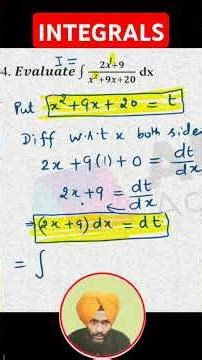 INTEGRALS
I =
4. Evaluate ∫ 2x+9 / x²+9x+20 dx
Put x²+9x+20 = t
Diff w.r.t x both side
2x + 9(1) + 0 = dt/dx
2x+9 = dt/dx
⇒(2x+9) dx = dt
= ∫